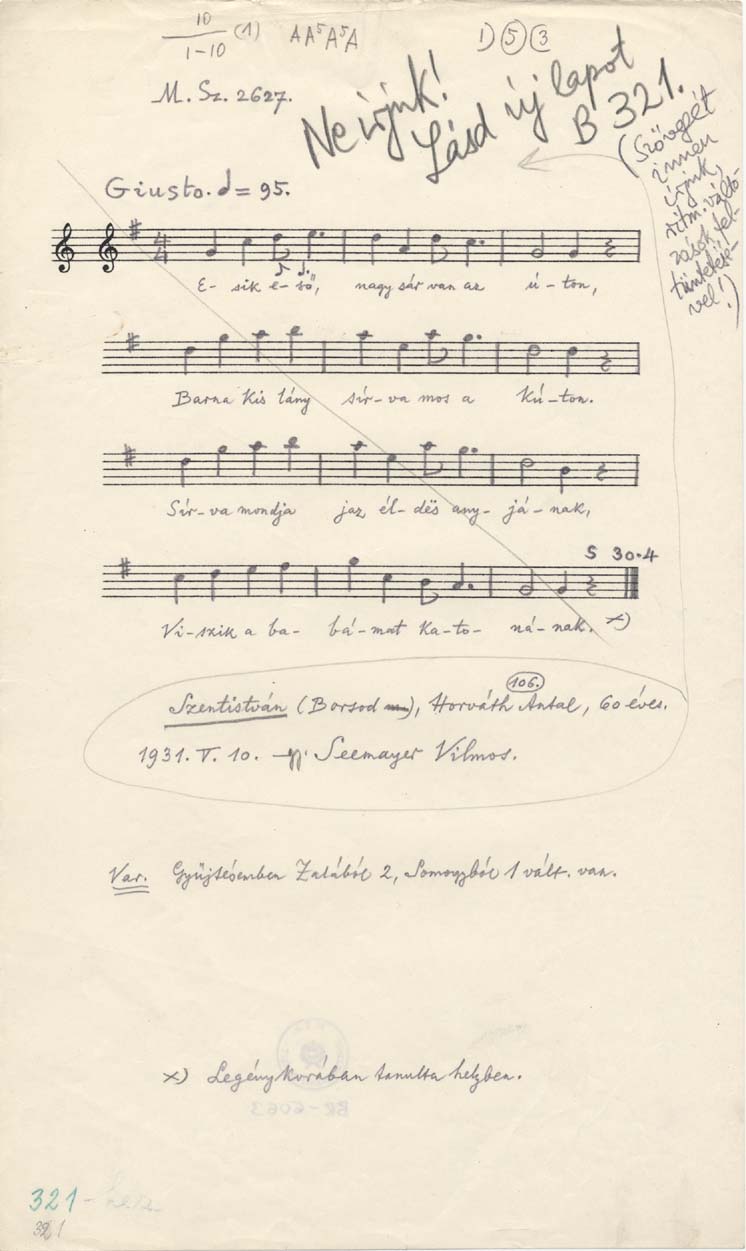 10
1–10 (1) AA⁵A⁵A 1) ⑤ ③
M. Sz. 2627.
Ne írjuk!
Lásd új lapot
B 321.
(Szövegét
innen
írjuk,
ritm. vál-
tozások fel-
tüntetésé-
vel!)
Giusto. ♩= 95.
E- sik e- ső, nagy sár van az ú-ton,
Barna kis lány sír-va mos a kú-ton.
Sír-va mondja jaz él-dës any-já-nak,
Vi-szik a ba-bá-mat ka-to-ná-nak. x)
S 30.4
106.
Szentistván (Borsod), Horváth Antal, 60 éves.
1931. V. 10. Seemayer Vilmos.
Var. Gyűjtésemben Zalából 2, Somogyból 1 vált. van.
x) Legénykorában tanulta helyben.
BR-6063
321-
321